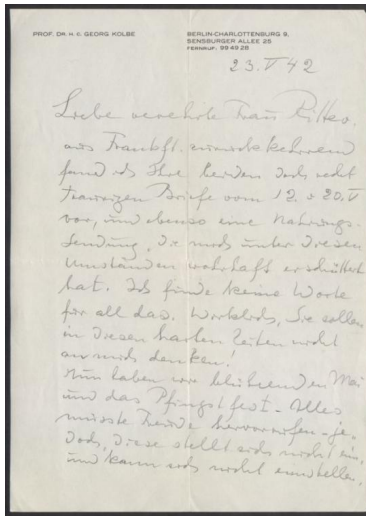 PROF. DR. H. C. GEORG KOLBE
BERLIN-CHARLOTTENBURG 9,
SENSBURGER ALLEE 25
FERNRUF: 99 49 28
23. V 42
Liebe verehrte Frau Ritter.
aus Frankft. zurückkehrend
fand ich Ihre beiden doch recht
traurigen Briefe vom 12. & 20. V
vor, und ebenso eine Nahrungs-
sendung, die mich unter diesen
Umständen wahrhaft erschüttert
hat. Ich finde keine Worte
für all das. Wirklich, Sie sollen
in diesen harten Zeiten nicht
an mich denken!
Nun haben wir blühenden Mai
und das Pfingstfest - Alles
müsste Freude hervorrufen - je-
doch, diese stellt sich nicht ein,
und kann sich nicht einstellen,